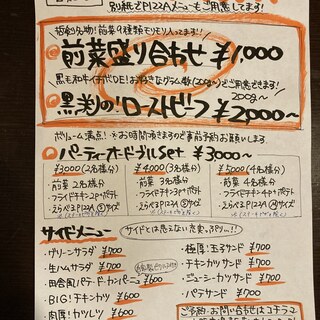 別紙でPIZZAメニューもご用意してます!
前菜9種類モリモリ入ってます!!
前菜盛り合わせ ¥1,000
黒毛和牛イチボDE!お好きなグラム数(200g~)でご用意できます!
200g~
ローストビーフ ¥2000~
ボリューム満点! お時間頂きますので事前予約お願いします。
パーティーオードブルSet ¥3000~
¥3000(2名様分) ¥4000(3名様分) ¥5000(4名様分)
・前菜2名様分 ・前菜3名様分 ・前菜4名様分
・フライドチキン2ヶ+ポテト ・フライドチキン3ヶ+ポテト ・フライドチキン4ヶ+ポテト
・えらべるPIZZA Sサイズ ・えらべるPIZZA Mサイズ ・えらべるPIZZA Mサイズ
サイドメニュー
サイドとは思えない充実っぷり…!!
・グリーンサラダ ¥700
・生ハムサラダ ¥700
・田舎風パテ・ド・カンパーニュ ¥600
・BIG!チキンカツ ¥600
・肉厚!カツレツ ¥700
・極厚!玉子サンド ¥700
・チキンカツサンド ¥700
・ジューシーカツサンド ¥700
・パテサンド ¥700
ご予約・お問い合せはコチラ